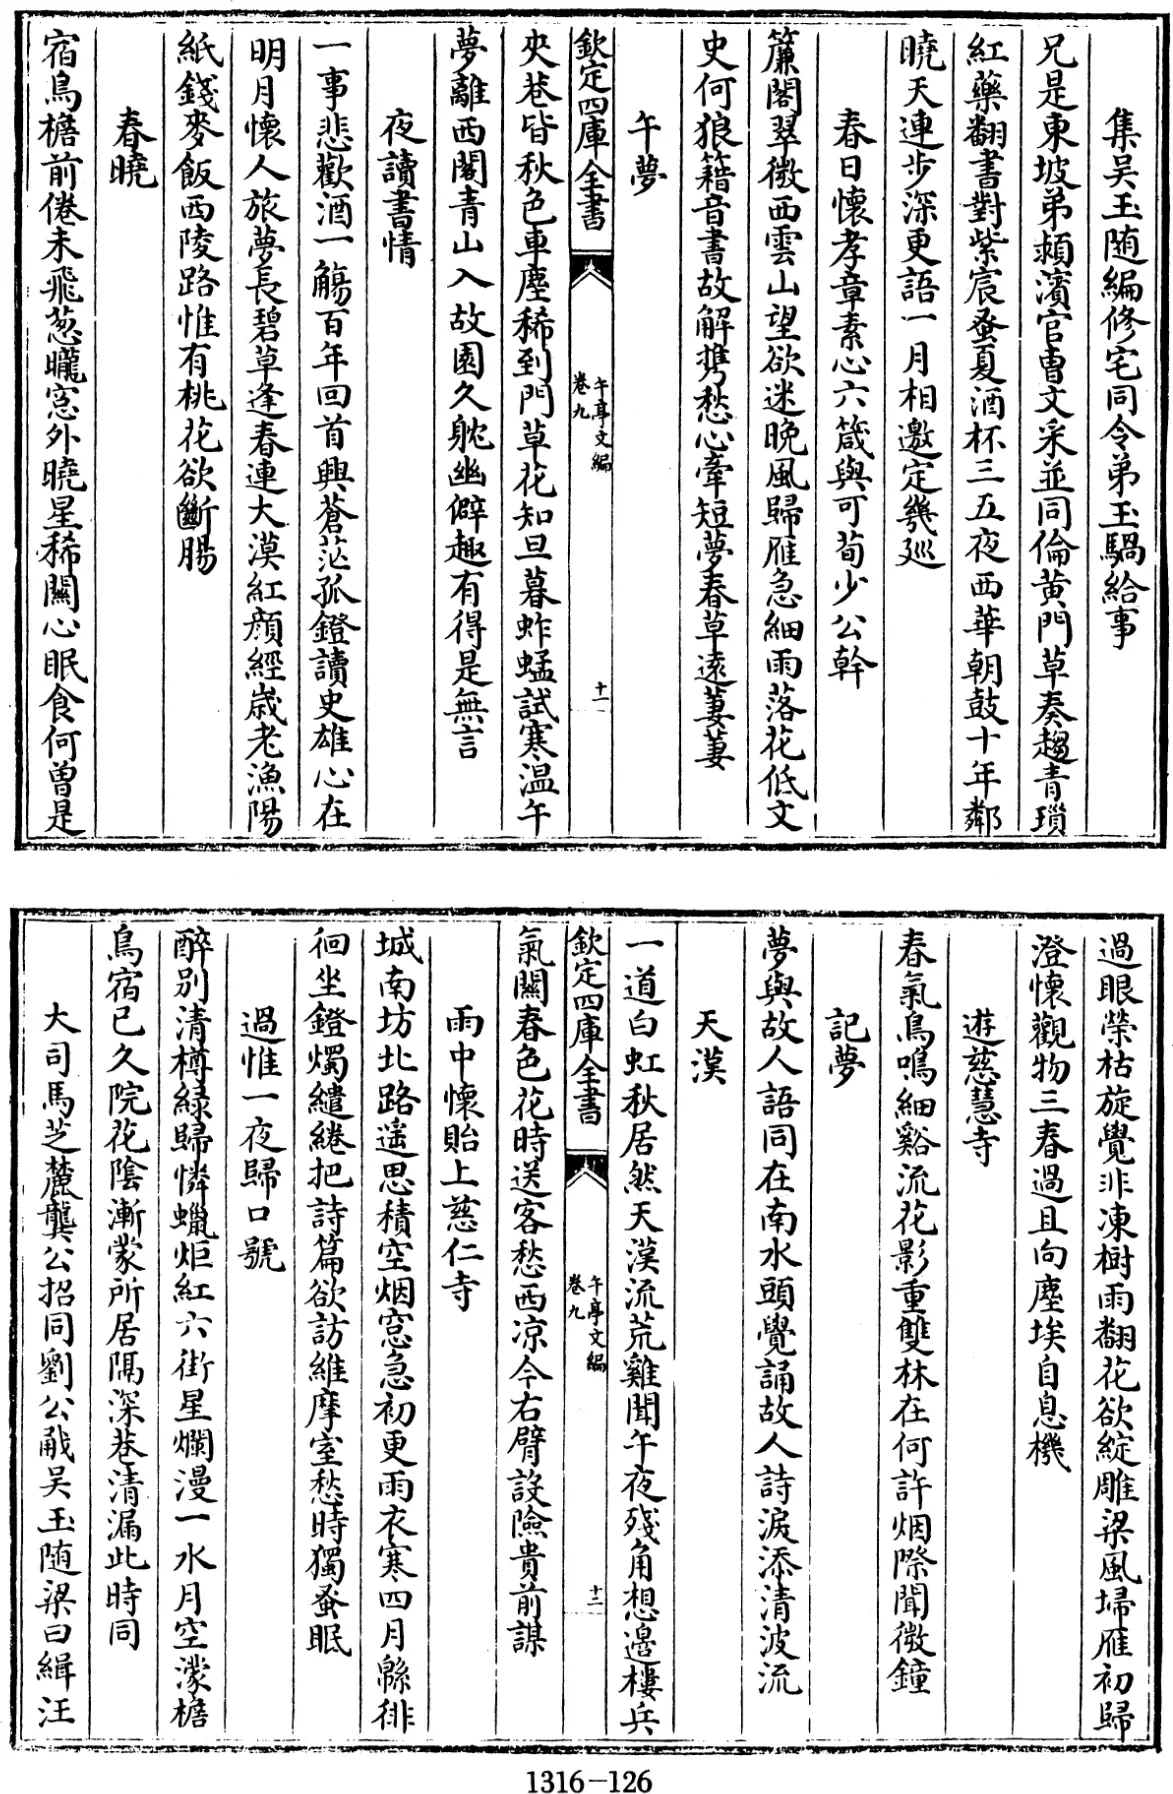 集吴玉随編修宅同令弟玉騧給事
兄是東坡弟頴濱官曹文采並同倫黄門草奏趨青瑣
紅藥翻書對紫宸蚤夏酒杯三五夜西華朝鼓十年鄰
曉天連步深更語一月相邀定幾廵
春日懷孝章素心六箴與可荀少公幹
簾閣翠微西雲山望欲迷晚風歸雁急細雨落花低文
史何狼籍音書故解携愁心牽短夢春草遠萋萋
午夢
欽定四庫全書
午亭文編
卷九
十一
夾巷皆秋色車塵稀到門草花知旦暮蚱蜢試寒温午
夢離西閣青山入故園久躭幽僻趣有得是無言
夜讀書情
一事悲歡酒一觴百年回首興蒼茫孤鐙讀史雄心在
明月懷人旅夢長碧草逢春連大漠紅顔經歲老漁陽
紙錢麥飯西陵路惟有桃花欲斷腸
春曉
宿鳥檐前倦未飛葱曨窓外曉星稀關心眠食何曽是
過眼榮枯旋覺非凍樹雨翻花欲綻雕梁風埽雁初歸
澄懷觀物三春過且向塵埃自息機
遊慈慧寺
春氣鳥鳴細谿流花影重雙林在何許烟際聞微鐘
記夢
夢與故人語同在南水頭覺誦故人詩淚添清波流
天漢
一道白虹秋居然天漢流荒雞聞午夜殘角想邉樓兵
欽定四庫全書
午亭文編
卷九
十二
氣關春色花時送客愁西凉今右臂設險貴前謀
雨中懷貽上慈仁寺
城南坊北路遥思積空烟窓急初更雨衣寒四月緜徘
徊坐鐙燭繾綣把詩篇欲訪維摩室愁時獨蚤眠
過惟一夜歸口號
醉别清樽緑歸憐蠟炬紅六街星爛漫一水月空濛檐
鳥宿已久院花陰漸蒙所居隔深巷清漏此時同
大司馬芝麓龔公招同劉公㦷吴玉随梁曰緝汪
1316-126